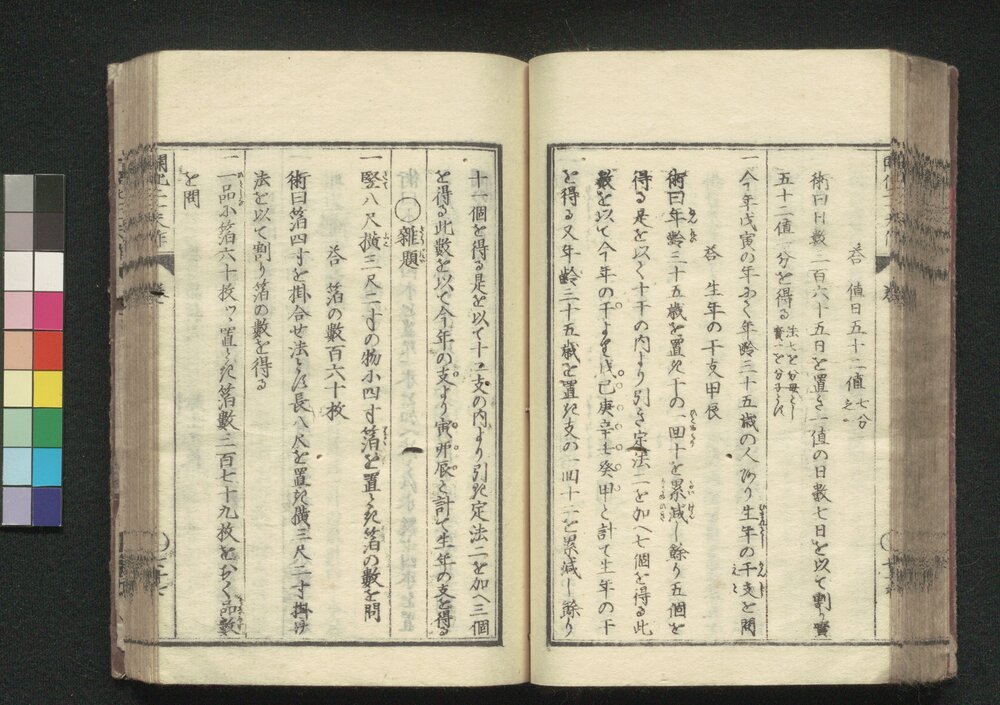 答 値日五十二値七分之一
術曰日數三百六十五日を置き一値の日數七日を以て割り實
五十二値一分を得る法七を分母とし實一を分子とす
一今年戊寅の年にして年齡三十五歳の人あり生年の干支を問
答 生年の干支甲辰
術曰年齡三十五歳を置き干の一回十を累減し餘り五個を
得る是を以て十干の内より引き定法二を加へ七個を得る此
數を以て今年の干より戊己庚辛壬癸甲と計て生年の干
を得る又年齡三十五歳を置き支の一回十二を累減し餘り
十一個を得る是を以て十二支の内より引き定法二を加へ三個
を得る此數を以て今年の支より寅卯辰と計て生年の支を得る
○雜題
一竪八尺橫三尺二寸の物に四寸箔を置くとき箔の數を問
答 箔の數百六十枚
術曰箔四寸を掛合せ法とし長八尺を置き橫三尺二寸掛け
法を以て割り箔の數を得る
一一品に箔六十枚ツヽ置くとき箔數三百七十九枚をおく品數
を問